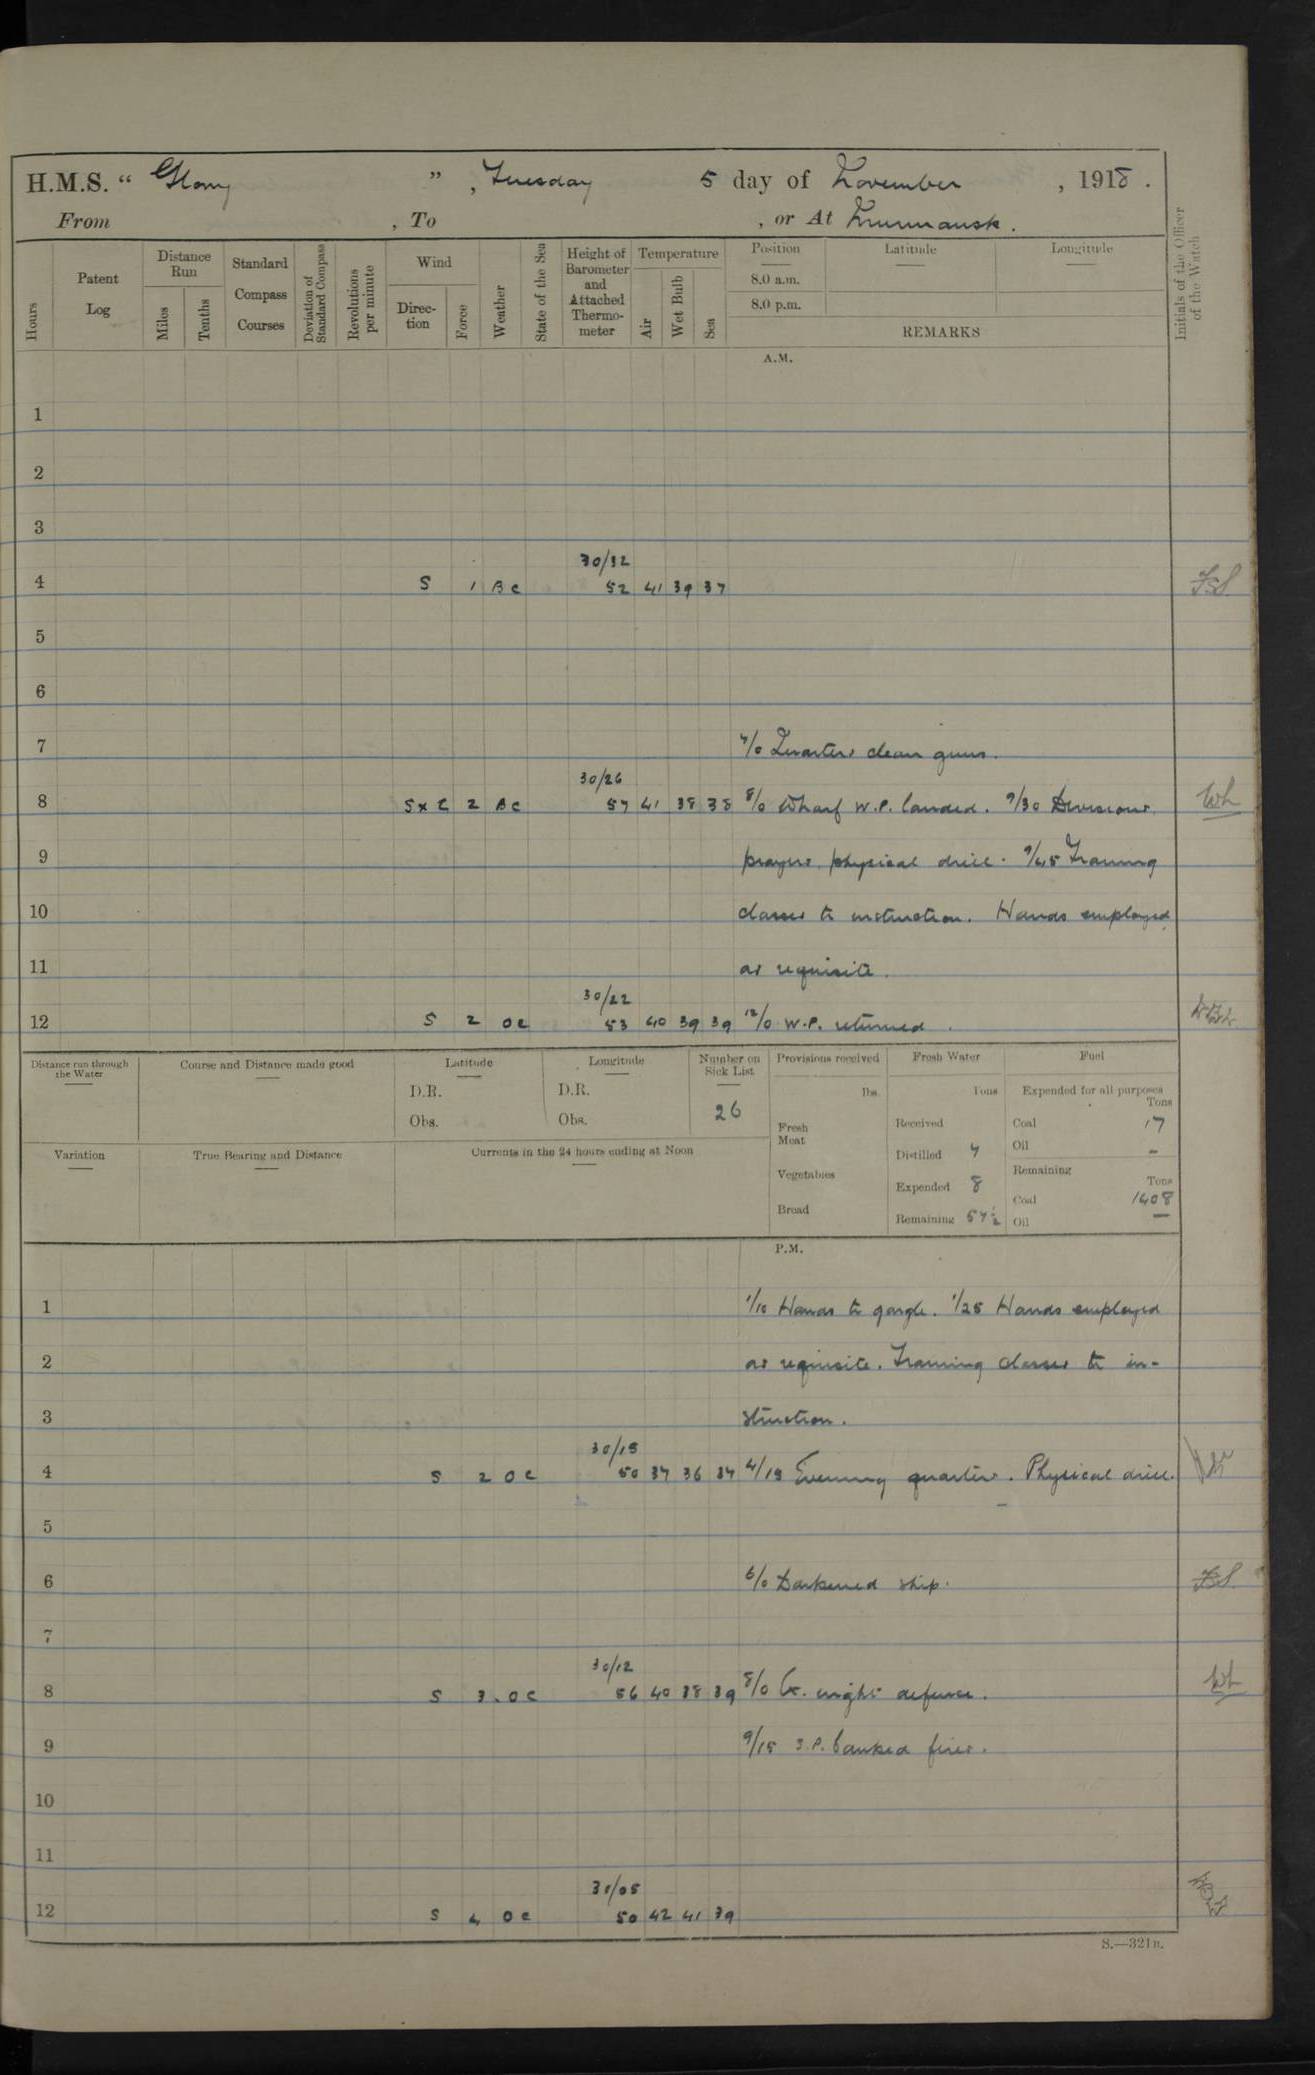 H.M.S. “ Glory ” , Tuesday 5 day of November , 1918 .
From , To , or At Murmansk .
Hours
Patent Log
Distance Run
Miles
Tenths
Standard Compass Courses
Deviation of Standard Compass
Revolutions per minute
Wind
Direc-tion
Force
Weather
State of the Sea
Height of Barometer and Attached Thermo-meter
Temperature
Air
Wet Bulb
Sea
Position Latitude Longitude
8.0 a.m.
8.0 p.m.
REMARKS
Initials of the Officer of the Watch
A.M.
1
2
3
30/32
4 S 1 BC 52 41 39 37
5
6
7 7/0 Quarters clean guns.
30/26
8 SxE 2 BC 57 41 38 38 8/0 Wharf W.P. landed. 9/30 Divisions
9 prayers, physical drill. 9/45 Training
10 classes to instruction. Hands employed
11 as requisite.
30/22
12 S 2 OC 53 40 39 39 12/0 W.P. returned.
Distance run through the Water
Course and Distance made good
Latitude
D.R.
Obs.
Longitude
D.R.
Obs.
Number on Sick List
26
Provisions received
lbs.
Fresh Meat
Vegetables
Bread
Fresh Water
Tons
Received
Distilled 7
Expended 8
Remaining 57½
Fuel
Expended for all purposes
Tons
Coal 17
Oil –
Remaining
Tons
Coal 1408
Oil —
Variation
True Bearing and Distance
Currents in the 24 hours ending at Noon
P.M.
1 1/10 Hands to gargle. 1/25 Hands employed
2 as requisite. Training classes to in-
3 struction.
30/15
4 S 2 OC 50 37 36 37 4/15 Evening quarters. Physical drill.
5
6 6/0 Darkened ship.
7
30/12
8 S 3 OC 56 40 38 39 8/0 Ex. night defence.
9 9/15 S.P. banked fires.
10
11
30/05
12 S 4 OC 50 42 41 39
S.—321B.